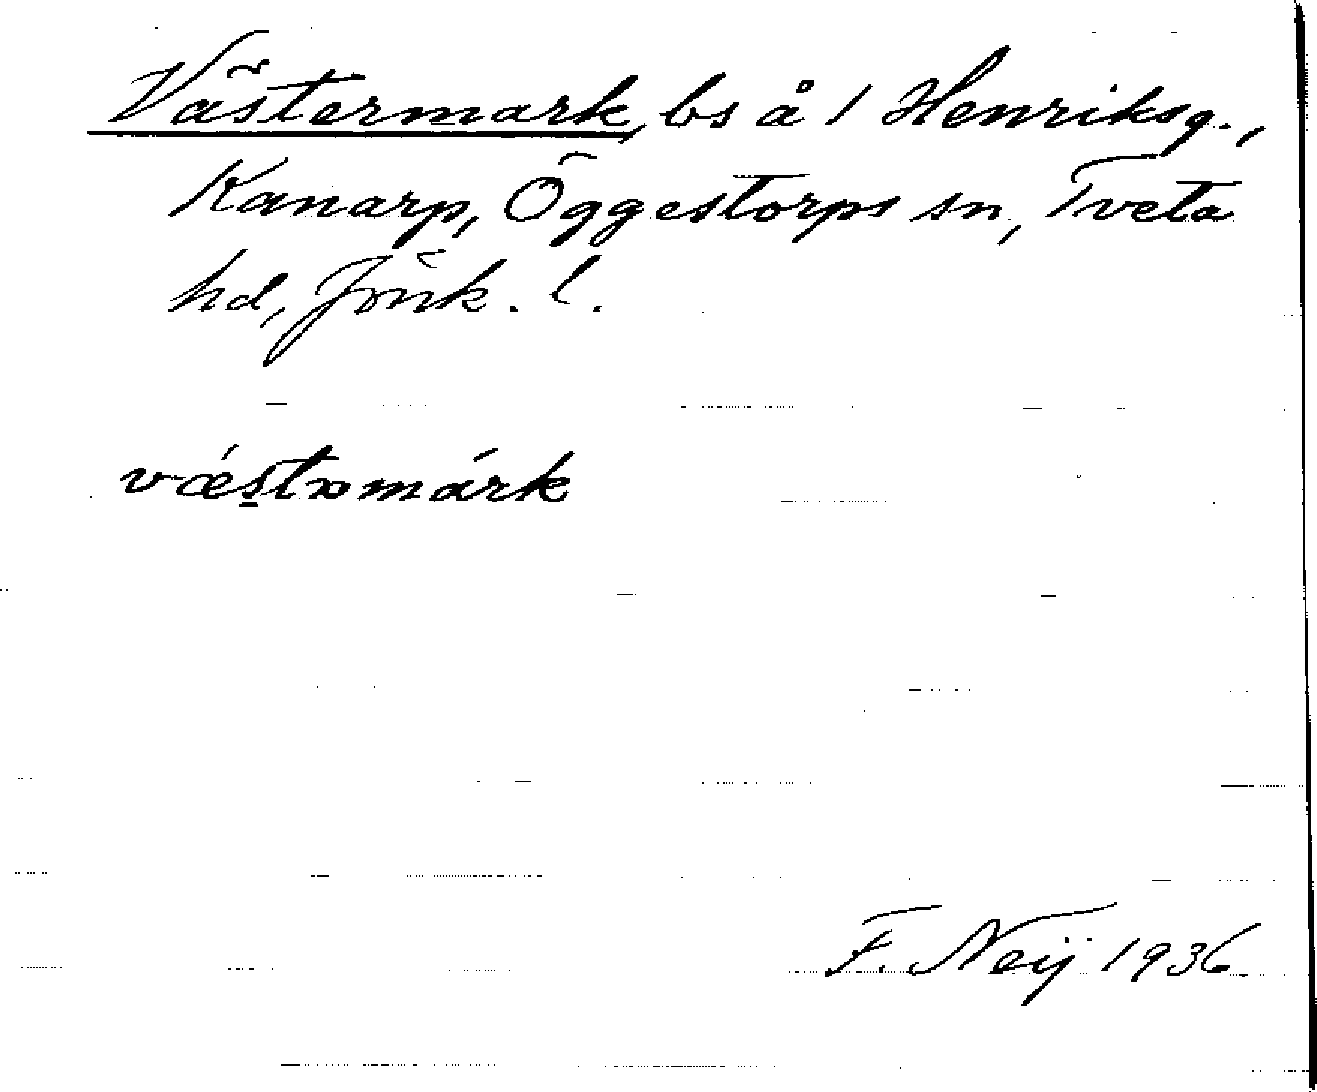 Västermark, bs å 1 Henriksg.,
Kanarp, Öggestorps sn, Tveta
hd, Jönk. l.
vǽstəmárk
F. Neij 1936